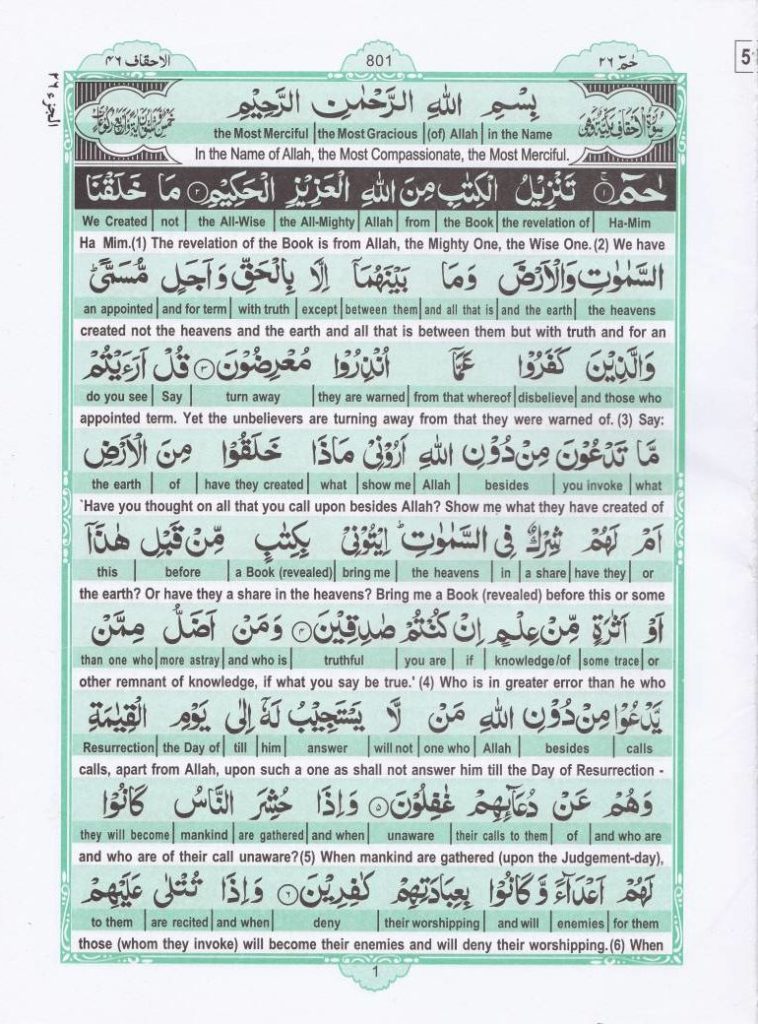 حٰمٓ ٢٦
801
الاحقاف ٤٦
5
بِسْمِ اللهِ الرَّحْمٰنِ الرَّحِيْمِ
in the Name | (of) Allah | the Most Gracious | the Most Merciful
In the Name of Allah, the Most Compassionate, the Most Merciful.
حٰمٓ ۝١ تَنْزِيْلُ الْكِتٰبِ مِنَ اللهِ الْعَزِيْزِ الْحَكِيْمِ ۝٢ مَا خَلَقْنَا
Ha-Mim | the revelation of | the Book | from | Allah | the All-Mighty | the All-Wise | not | We Created
Ha Mim.(1) The revelation of the Book is from Allah, the Mighty One, the Wise One. (2) We have
السَّمٰوٰتِ وَالْاَرْضَ وَمَا بَيْنَهُمَاۤ اِلَّا بِالْحَقِّ وَاَجَلٍ مُّسَمًّى ؕ
the heavens | and the earth | and all that is | between them | except | with truth | and for term | an appointed
created not the heavens and the earth and all that is between them but with truth and for an
وَالَّذِيْنَ كَفَرُوْا عَمَّاۤ اُنْذِرُوْا مُعْرِضُوْنَ ۝٣ قُلْ اَرَءَيْتُمْ
and those who | disbelieve | from that whereof | they are warned | turn away | Say | do you see
appointed term. Yet the unbelievers are turning away from that they were warned of. (3) Say:
مَّا تَدْعُوْنَ مِنْ دُوْنِ اللهِ اَرُوْنِيْ مَاذَا خَلَقُوْا مِنَ الْاَرْضِ
what | you invoke | besides | Allah | show me | what | have they created | of | the earth
`Have you thought on all that you call upon besides Allah? Show me what they have created of
اَمْ لَهُمْ شِرْكٌ فِي السَّمٰوٰتِ ؕ اِيْتُوْنِيْ بِكِتٰبٍ مِّنْ قَبْلِ هٰذَاۤ
or | have they | a share | in | the heavens | bring me | a Book (revealed) | before | this
the earth? Or have they a share in the heavens? Bring me a Book (revealed) before this or some
اَوْ اَثٰرَةٍ مِّنْ عِلْمٍ اِنْ كُنْتُمْ صٰدِقِيْنَ ۝٤ وَمَنْ اَضَلُّ مِمَّنْ
or | some trace | knowledge/of | if | you are | truthful | and who is | more astray | than one who
other remnant of knowledge, if what you say be true.' (4) Who is in greater error than he who
يَّدْعُوْا مِنْ دُوْنِ اللهِ مَنْ لَّا يَسْتَجِيْبُ لَهٗۤ اِلٰى يَوْمِ الْقِيٰمَةِ
calls | besides | Allah | one who | will not | answer | him | till | the Day of | Resurrection
calls, apart from Allah, upon such a one as shall not answer him till the Day of Resurrection -
وَهُمْ عَنْ دُعَآئِهِمْ غٰفِلُوْنَ ۝٥ وَاِذَا حُشِرَ النَّاسُ كَانُوْا
and who are | of | their calls to them | unaware | and when | are gathered | mankind | they will become
and who are of their call unaware?(5) When mankind are gathered (upon the Judgement-day),
لَهُمْ اَعْدَآءً وَّكَانُوْا بِعِبَادَتِهِمْ كٰفِرِيْنَ ۝٦ وَاِذَا تُتْلٰى عَلَيْهِمْ
for them | enemies | and will | their worshipping | deny | and when | are recited | to them
those (whom they invoke) will become their enemies and will deny their worshipping.(6) When
1